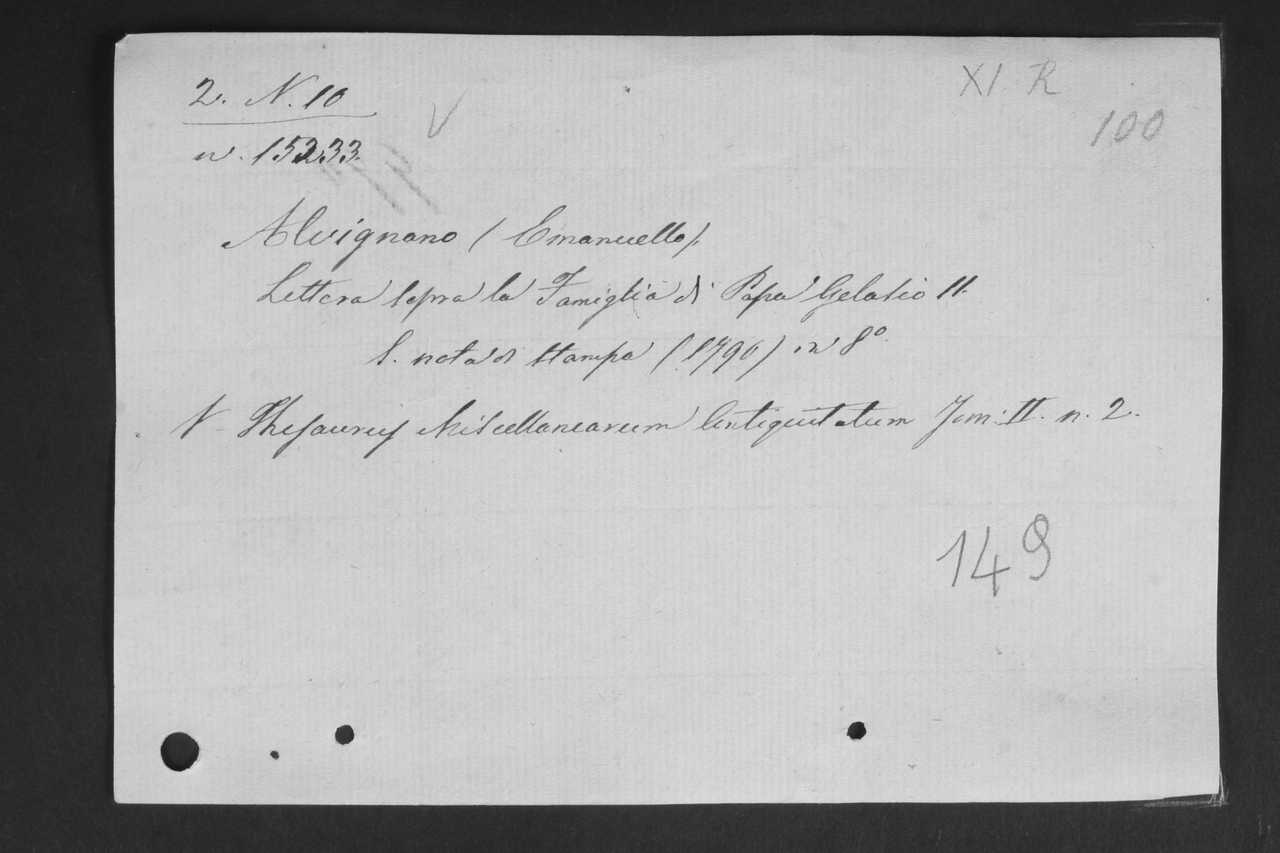 2. N. 10
XI R
V
100
n. 15233.
Alvignano (Emanuello).
Lettera sopra la Famiglia di Papa Gelasio II.
S. nota di stampa (1790) in 8º.
V Thesaurus Miscellanearum Antiquitatum Tom: II. n. 2.
149